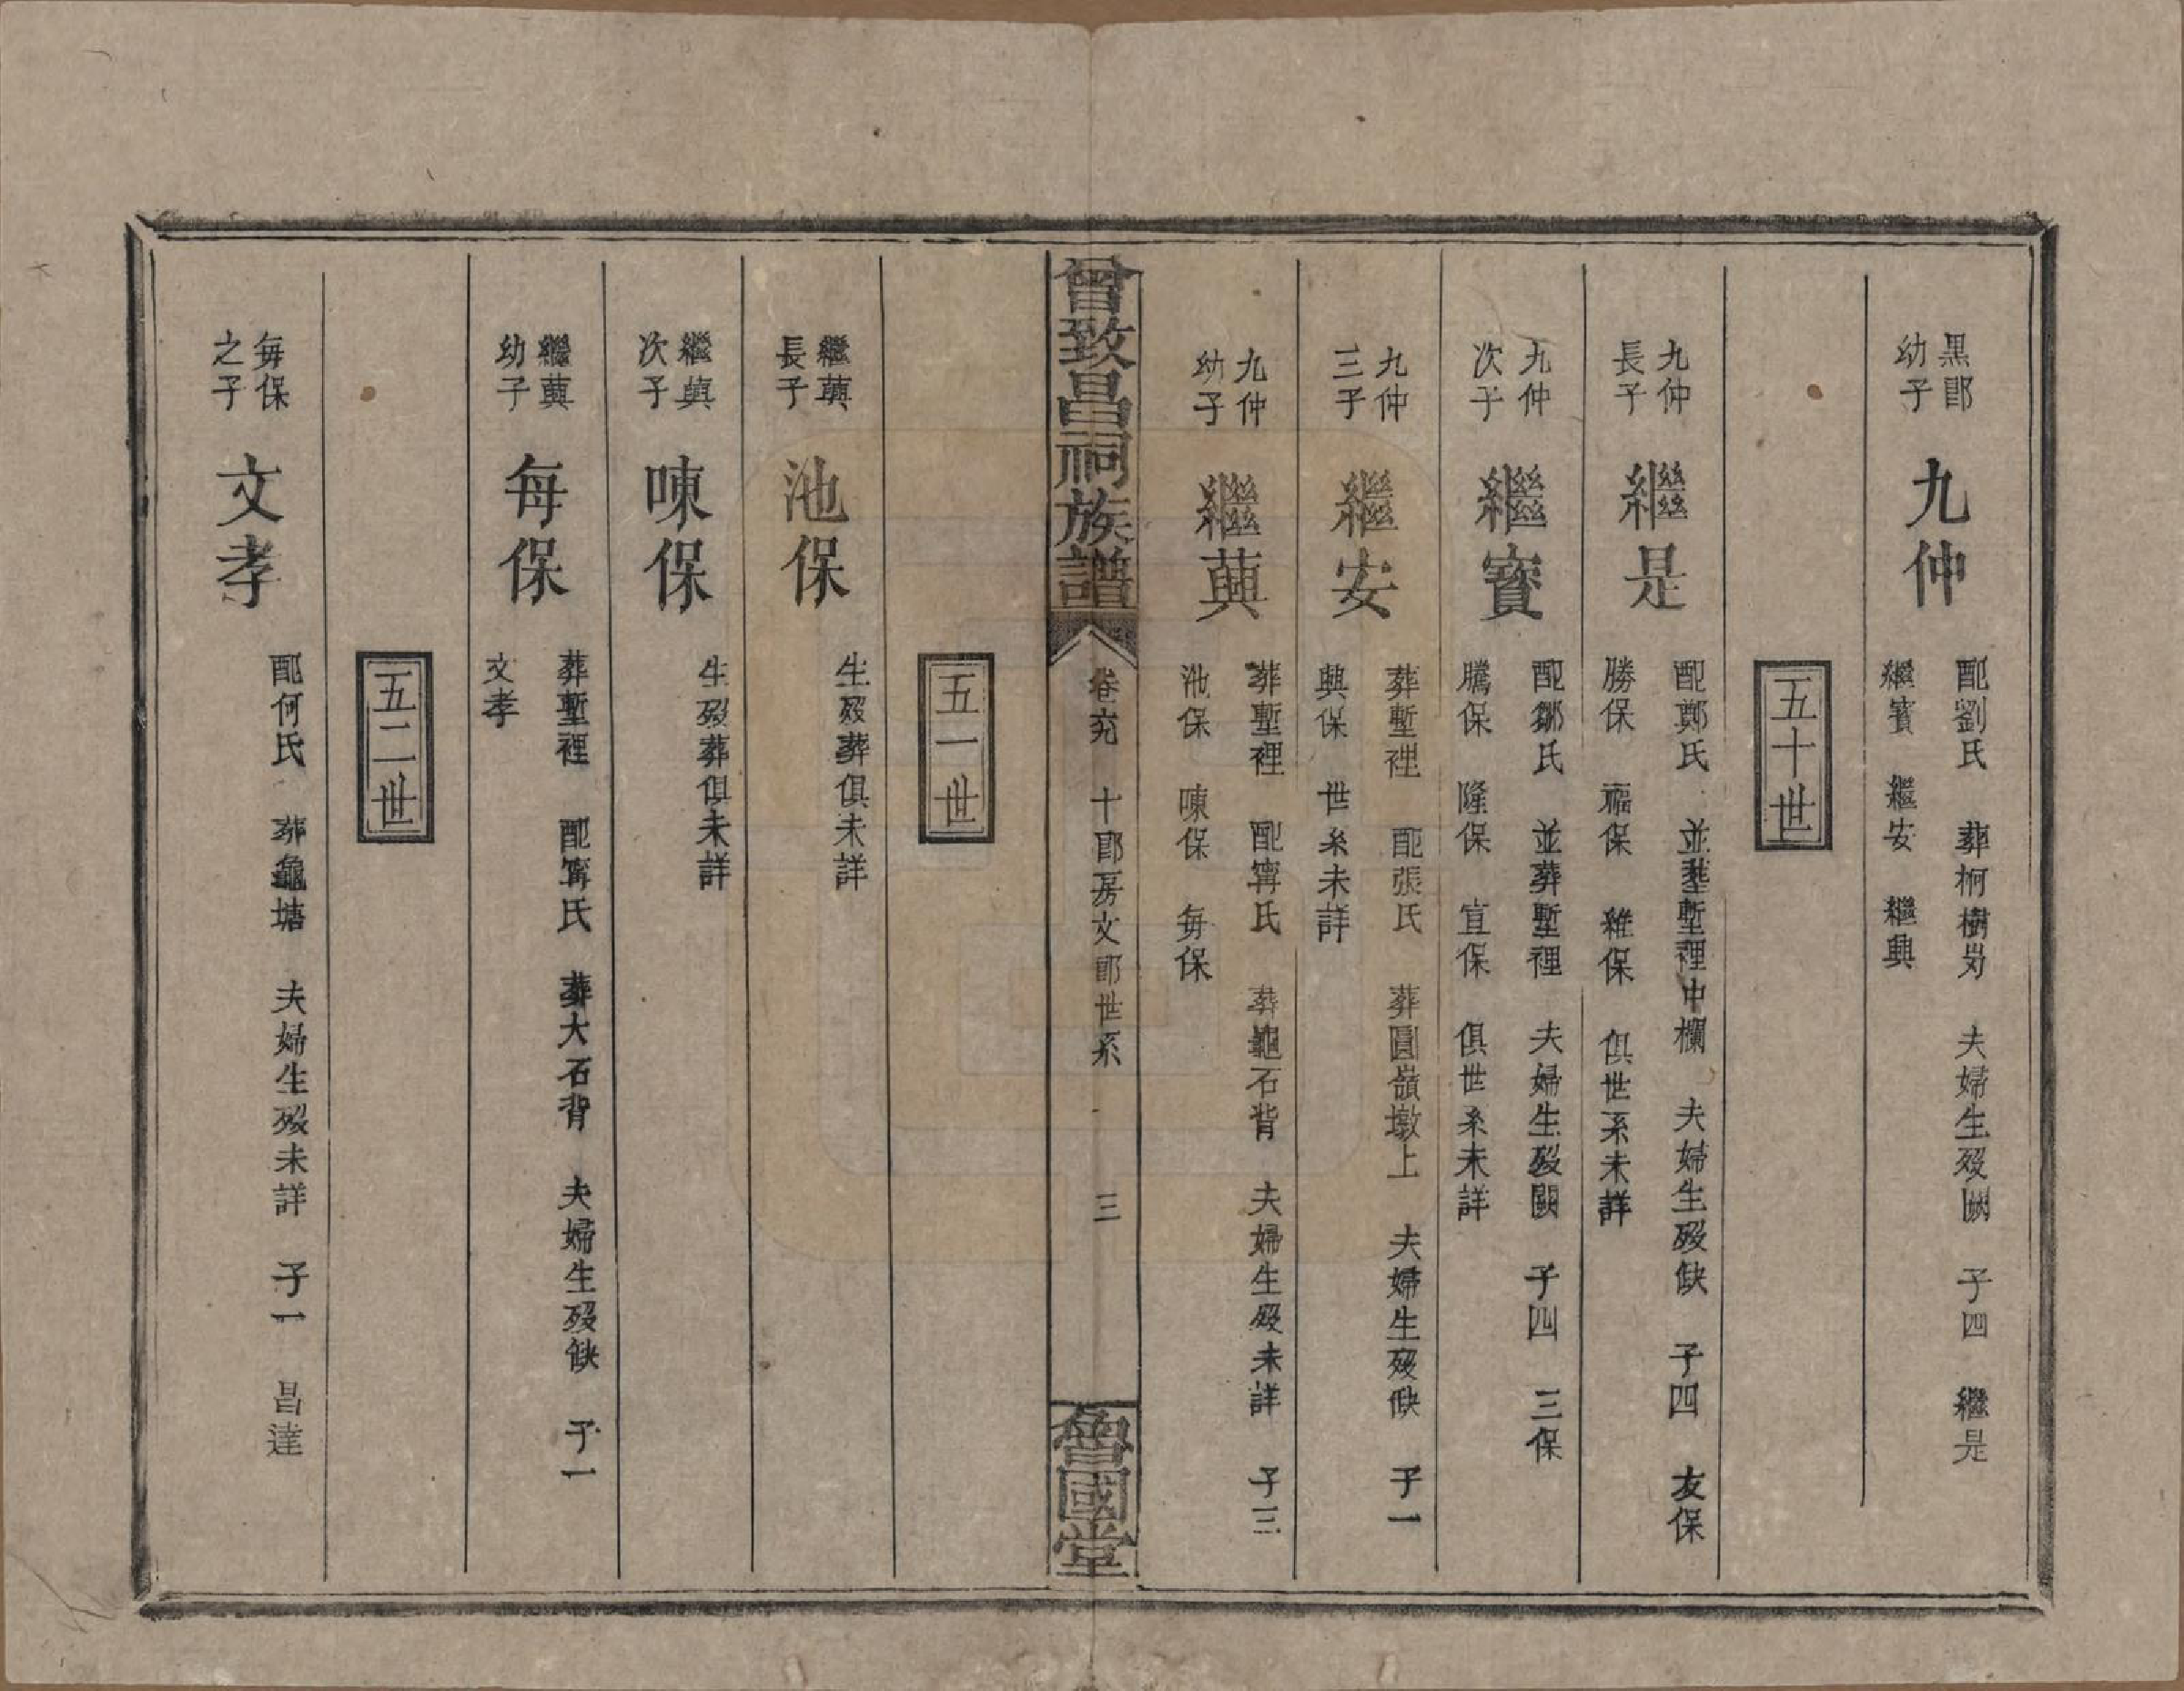 黑郎
幼子
九仲
配劉氏 葬柯樹㘭 夫婦生歿闕 子四 繼是
繼賓 繼安 繼興
五十世
九仲
長子
繼是
配鄭氏 並塟塹裡中欄 夫婦生歿缺 子四 友保
勝保 福保 雜保 俱世系未詳
九仲
次子
繼賓
配鄒氏 並葬塹裡 夫婦生歿闕 子四 三保
騰保 隆保 宜保 俱世系未詳
九仲
三子
繼安
葬塹裡 配張氏 葬圓嶺墩上 夫婦生歿缺 子一
興保 世系未詳
九仲
幼子
繼蕻
葬塹裡 配甯氏 葬龜石背 夫婦生歿未詳 子三
池保 㖦保 每保
曾致昌祠族譜
卷 十郎房文郎世系 三
魯國堂
五一世
繼蕻
長子
池保
生歿葬俱未詳
繼蕻
次子
㖦保
生歿葬俱未詳
繼蕻
幼子
每保
葬塹裡 配甯氏 葬大石背 夫婦生歿缺 子一
文孝
五二世
每保
之子
文孝
配何氏 葬龜塘 夫婦生歿未詳 子一 昌達